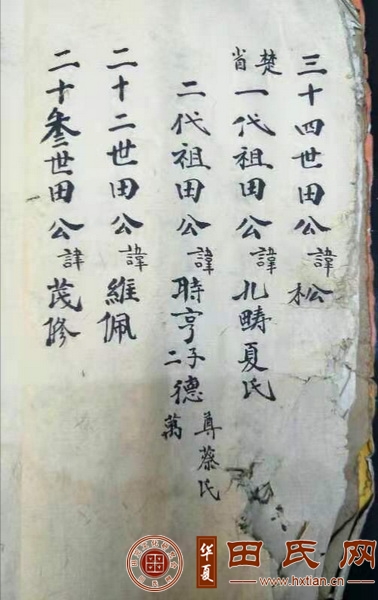 三十四世田公諱松
楚省一代祖田公諱九疇夏氏
二代祖田公諱時亨二子德萬尊蔡氏
二十二世田公諱維佩
二十叁世田公諱茂修
华夏
田氏网
www.hxtian.cn